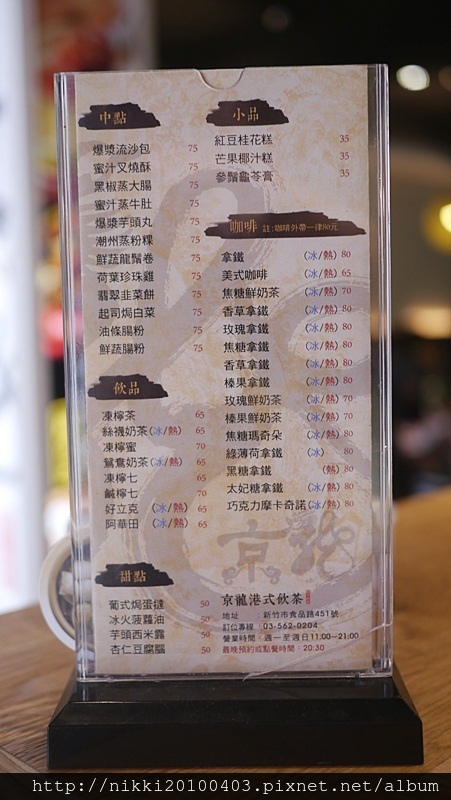 中點
爆漿流沙包 75
蜜汁叉燒酥 75
黑椒蒸大腸 75
蜜汁蒸牛肚 75
爆漿芋頭丸 75
潮州蒸粉粿 75
鮮蔬龍鬚卷 75
荷葉珍珠雞 75
翡翠韮菜餅 75
起司焗白菜 75
油條腸粉 75
鮮蔬腸粉 75
飲品
凍檸茶 65
絲襪奶茶(冰/熱) 65
凍檸蜜 70
鴛鴦奶茶(冰/熱) 65
凍檸七 65
鹹檸七 70
好立克 (冰/熱) 65
阿華田 (冰/熱) 65
甜點
葡式焗蛋撻 50
冰火菠蘿油 50
芋頭西米露 50
杏仁豆腐腦 50
小品
紅豆桂花糕 35
芒果椰汁糕 35
參鬚龜苓膏 35
咖啡 註:咖啡外帶一律80元
拿鐵 (冰/熱) 80
美式咖啡 (冰/熱) 65
焦糖鮮奶茶 (冰/熱) 70
香草拿鐵 (冰/熱) 80
玫瑰拿鐵 (冰/熱) 80
焦糖拿鐵 (冰/熱) 80
香草拿鐵 (冰/熱) 80
榛果拿鐵 (冰/熱) 80
玫瑰鮮奶茶 (冰/熱) 70
榛果鮮奶茶 (冰/熱) 70
焦糖瑪奇朵 (冰/熱) 80
綠薄荷拿鐵 (冰) 80
黑糖拿鐵 (熱) 80
太妃糖拿鐵 (冰/熱) 80
巧克力摩卡奇諾(冰/熱) 80
京龍
京龍港式飲茶
地址 : 新竹市食品路451號
訂位專線 : 03-562-0204
營業時間 : 週一至週日11:00~21:00
最晚預約或點餐時間 : 20:30
http://nikki20100403.pixnet.net/album